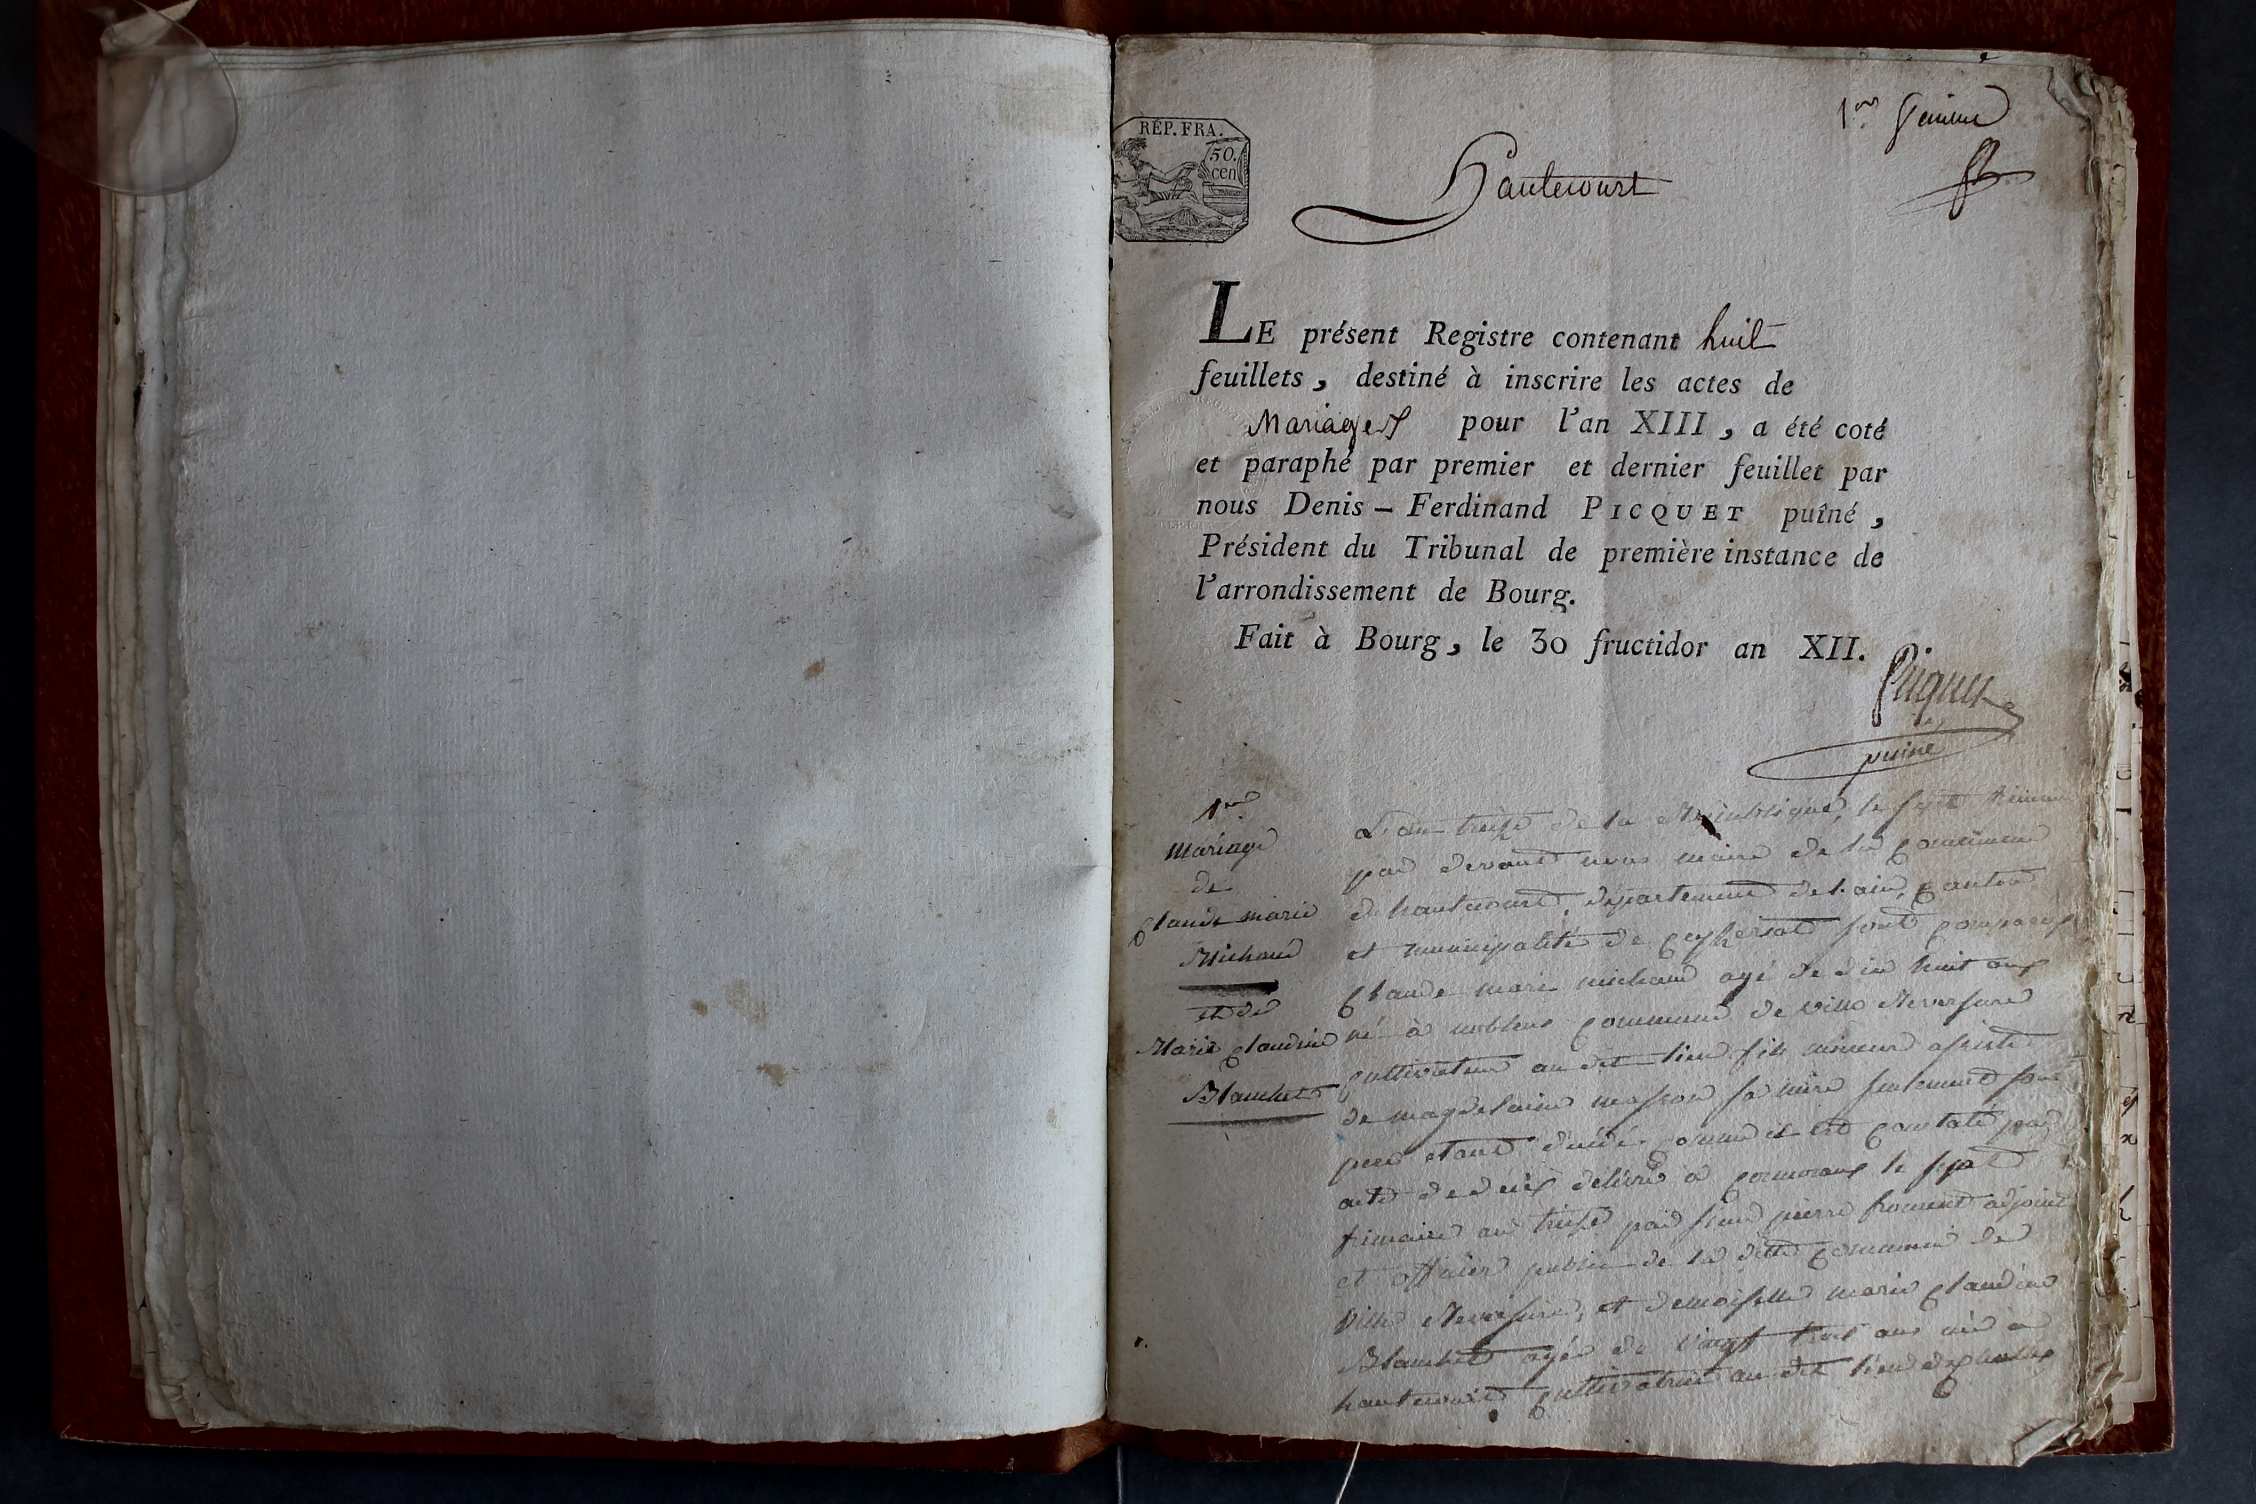 1er feuillet
RÉP. FRA.
50.
cen
Hautecourt
LE présent Registre contenant huit
feuillets, destiné à inscrire les actes de
Mariages pour l'an XIII, a été coté
et paraphé par premier et dernier feuillet par
nous Denis-Ferdinand PICQUET puîné,
Président du Tribunal de première instance de
l'arrondissement de Bourg.
Fait à Bourg, le 30 fructidor an XII.
Picquet
puiné
1er
Mariage
de
Claude marie
Michaud
et de
Marie Claudine
Blanchet
L'an treize de la République, le sept
par devant nous maire de la commune
de hautecourt, département de l'ain, canton
et municipalité de Ceyzeriat sont comparus
Claude marie michaud agé de dix huit ans
né à commune de ville Reversure
cultivateur au dit lieu fils mineur assisté
de magdelaine masson sa mère seulement son
pere etant décédé comme il est constaté par
acte de decès délivré a le sept
frimaire an treize par sieur pierre froment adjoint
et officier public de la ditte commune de
ville Reversure, et demoiselle marie claudine
Blanchet agée de vingt trois ans née a
hautecourt cultivatrice au dit lieu